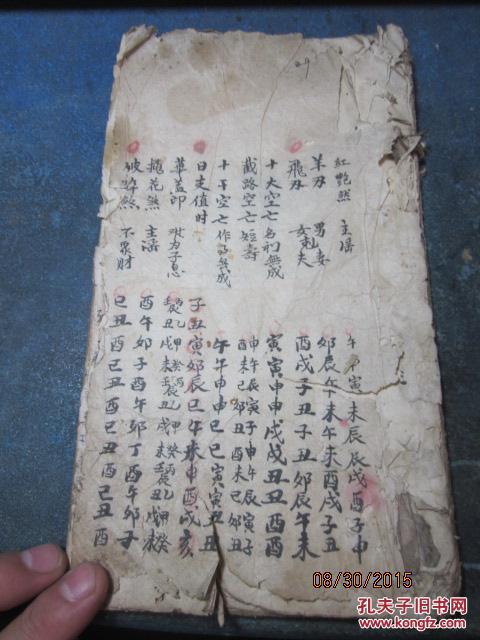 紅艷煞 主淫 午申寅未辰辰戌酉子申
羊刃 男剋妻 卯辰午未午未酉戌子丑
飛刃 女剋夫 酉戌子丑子丑卯辰午未
十大空亡 名利無成 寅寅申申戌戌丑丑酉酉
截路空亡 短壽 申午辰寅子申午辰寅子
酉未巳卯丑酉未巳卯丑
十干空亡 作事無成 午午申申巳巳寅寅丑丑
日走值时 子丑寅卯辰巳午未申酉戌亥
華盖印 子息
桃花煞 主淫 酉午卯子酉午卯子酉午卯子
破碎煞 不聚財 巳丑酉巳丑酉巳丑酉巳丑酉
08/30/2015
孔夫子旧书网
www.kongfz.com